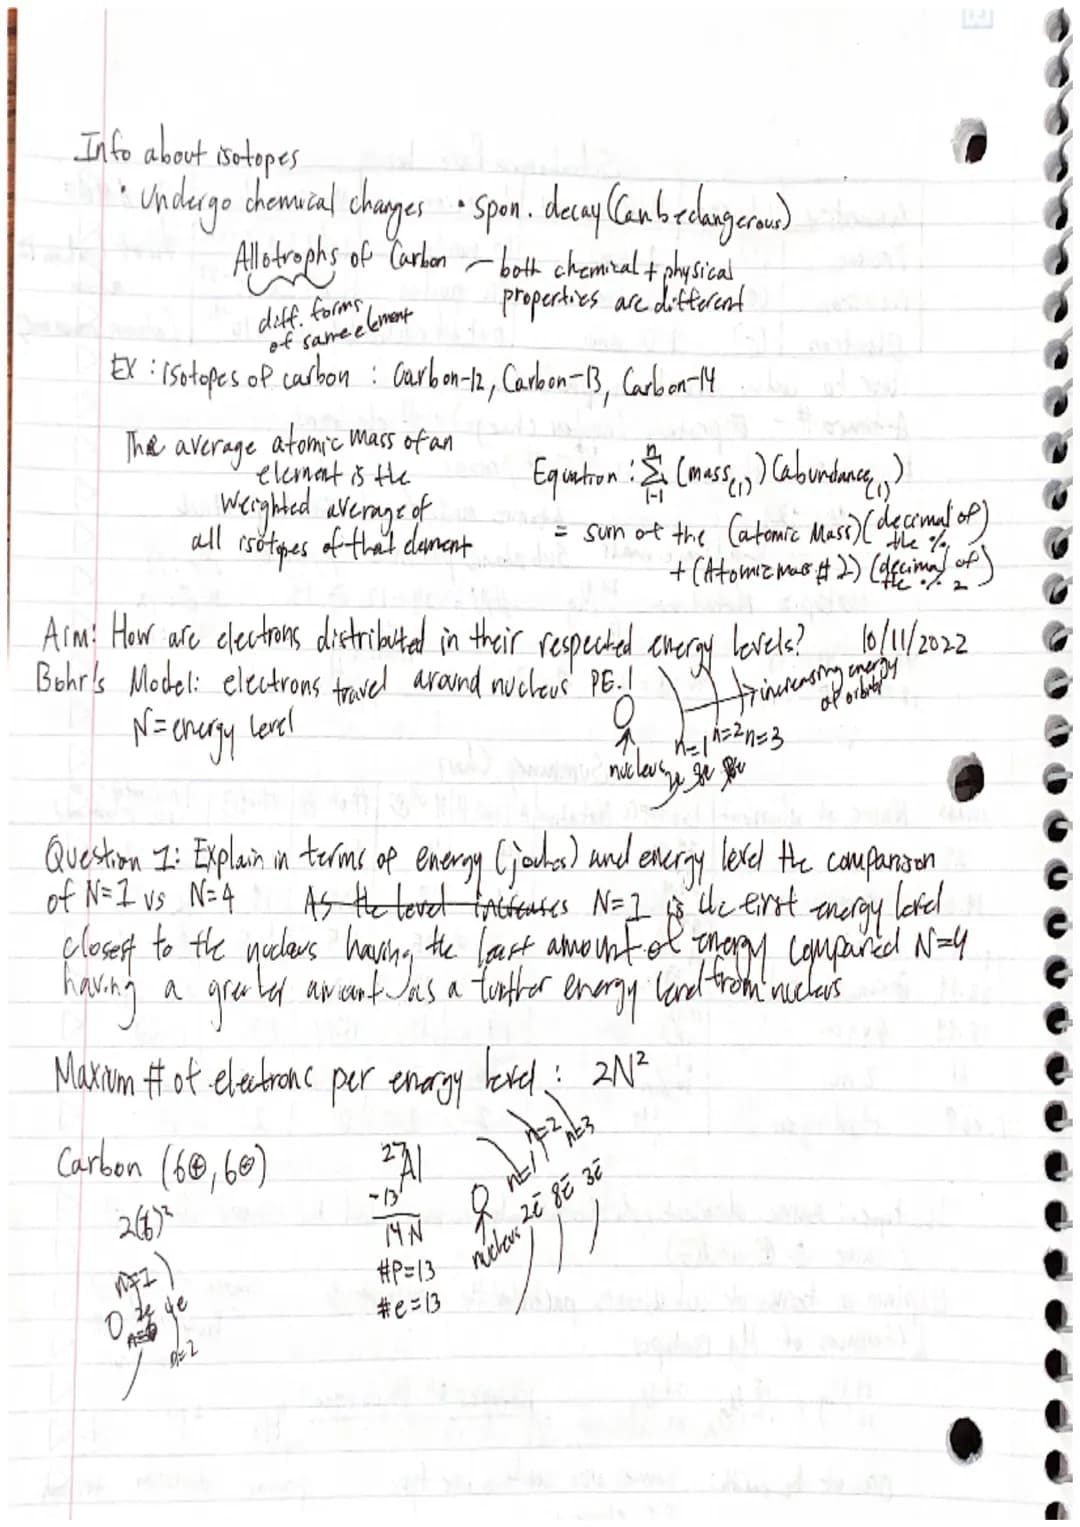 Info about isotopes
• Undergo chemical changes • Spon. decay (Can be dangerous)
Allotrophs of Carbon - both chemical + physical
properties are different
diff. forms
of same element
EX : isotopes of carbon : Carbon-12, Carbon-13, Carbon-14
The average atomic mass of an
element is the
weighted average of
all isotopes of that element
Equation : n Σ i-1 (mass(i)) (abundance(i))
= sum of the (atomic Mass) (decimal of the %)
+ (Atomic mass # 2) (decimal of the % 2)
Aim: How are electrons distributed in their respected energy levels? 10/11/2022
Bohr's Model: electrons travel around nucleus PE.!
N=energy level
increasing energy
of orbital
n=1 n=2 n=3
nucleus 2e 8e 8e
Question 1: Explain in terms of energy (joules) and energy level the comparison
of N=1 vs N=4 As the level increases N=1 is the first energy level
closest to the nucleus having the least amount of energy compared N=4
having a greater amount as a further energy level from nucleus
Maxium # of electrons per energy level : 2N²
Carbon (6⊕, 6⊖)
2(6)²
n=1
2e 4e
n=2
27
Al
-13
14 N
#P=13
#e=13
n=1 n=2 n=3
nucleus 2e̅ 8e̅ 3e̅